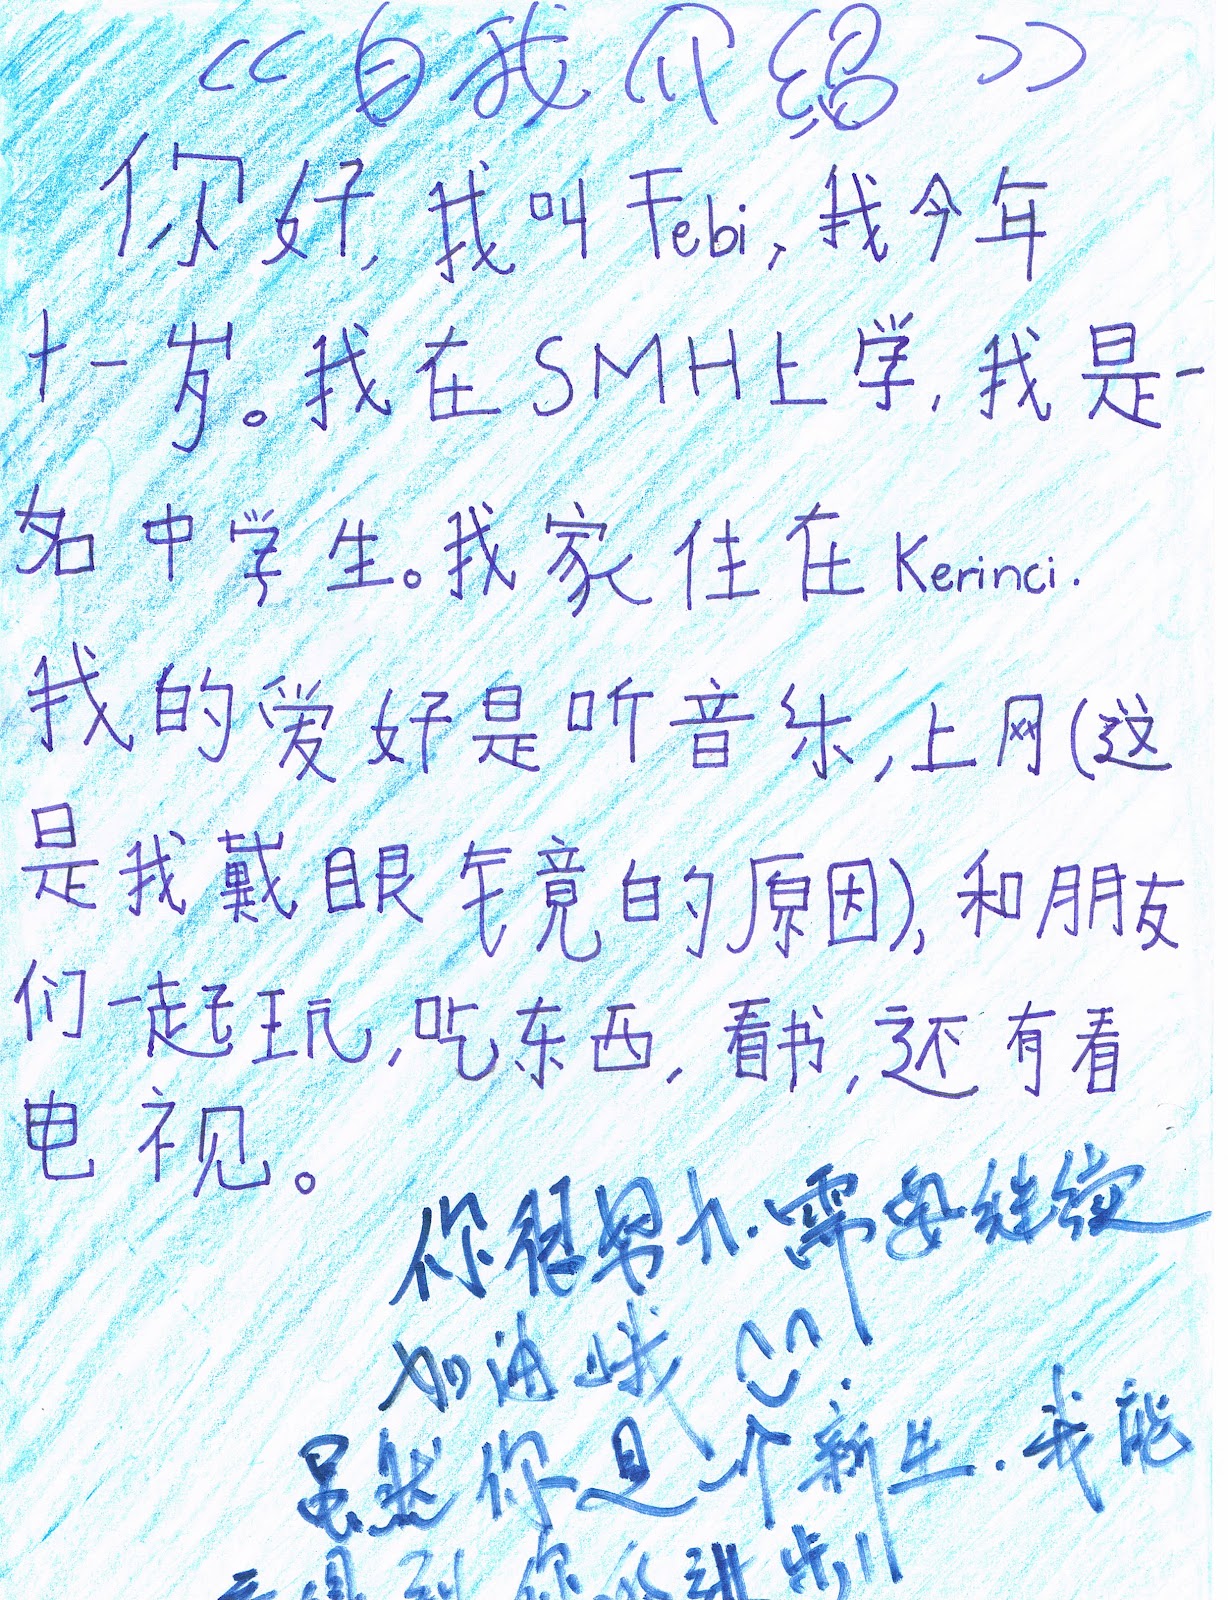 <<自我介绍>>
你好,我叫Febi,我今年
十一岁。我在SMH上学,我是一
名中学生。我家住在Kerinci.
我的爱好是听音乐,上网(这
是我戴眼镜的原因),和朋友
们一起玩,吃东西,看书,还有看
电视。
你很努力.需要继续
加油哦
虽然你是一个新生.我能
看得到你的进步!!